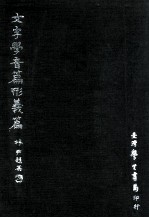 文字學音篇形義篇
臺灣學生書局印行